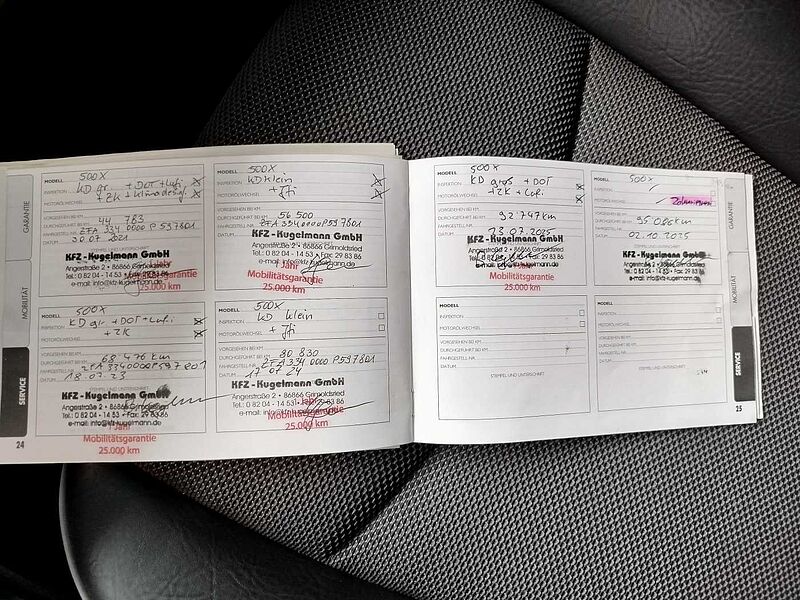 GARANTIE
MOBILITÄT
SERVICE
24
MODELL 500X
INSPEKTION KD gr. + DOT + Lufi
MOTORÖLWECHSEL + ZK + Klimadesinf.
VORGESEHEN BEI KM
DURCHGEFÜHRT BEI KM 44 783
FAHRGESTELL-NR. ZFA 334 0000 P597801
DATUM 30.07.2021
KFZ - Kugelmann GmbH
Angerstraße 2 • 86866
Tel.: 0 82 04 - 14 53
e-mail: info@kfz-kugelmann.de
1 Jahr
Mobilitätsgarantie
25.000 km
MODELL 500X
INSPEKTION KD klein
MOTORÖLWECHSEL + Ifi
VORGESEHEN BEI KM
DURCHGEFÜHRT BEI KM 56 500
FAHRGESTELL-NR. ZFA 3340000 P597801
DATUM
KFZ - Kugelmann GmbH
Angerstraße 2 • 86866 Grimoldsried
Tel.: 0 82 04 - 14 53 • Fax: 29 83 86
e-mail: info@kfz-kugelmann.de
1 Jahr
Mobilitätsgarantie
25.000 km
MODELL 500X
INSPEKTION KD gr. + DOT + Lufi
MOTORÖLWECHSEL + ZK
VORGESEHEN BEI KM
DURCHGEFÜHRT BEI KM 68 476 km
FAHRGESTELL-NR. ZFA 3340000P597801
DATUM 18.07.23
STEMPEL UND UNTERSCHRIFT
KFZ - Kugelmann GmbH
Angerstraße 2 • 86866 Grimoldsried
Tel.: 0 82 04 - 14 53 • Fax: 29 83 86
e-mail: info@kfz-kugelmann.de
1 Jahr
Mobilitätsgarantie
25.000 km
MODELL 500X
INSPEKTION KD klein
MOTORÖLWECHSEL + Ifi
VORGESEHEN BEI KM
DURCHGEFÜHRT BEI KM 80 830
FAHRGESTELL-NR. ZFA 334 0000 P597801
DATUM 17 07 24
KFZ - Kugelmann GmbH
Angerstraße 2 • 86866 Grimoldsried
Tel.: 0 82 04 - 14 53 • Fax: 29 83 86
e-mail: info@kfz-kugelmann.de
1 Jahr
Mobilitätsgarantie
25.000 km
MODELL 500X
INSPEKTION KD gros + DOT
MOTORÖLWECHSEL + ZK + Lufi
VORGESEHEN BEI KM
DURCHGEFÜHRT BEI KM 92 747 km
FAHRGESTELL-NR.
DATUM 23.07.2025
KFZ - Kugelmann GmbH
Angerstraße 2 • 86866 Grimoldsried
Tel.: 0 82 04 - 14 53 • Fax: 29 83 86
1 Jahr
Mobilitätsgarantie
25.000 km
MODELL 500X
INSPEKTION
MOTORÖLWECHSEL Zahnriemen
VORGESEHEN BEI KM
DURCHGEFÜHRT BEI KM 95 080 km
FAHRGESTELL-NR.
DATUM 02.10.2025
STEMPEL UND UNTERSCHRIFT
KFZ - Kugelmann GmbH
Angerstraße 2 • 86866 Grimoldsried
Tel.: 0 82 04 - 14 53 • Fax: 29 83 86
e-mail: info@kfz-kugelmann.de
MODELL
INSPEKTION
MOTORÖLWECHSEL
VORGESEHEN BEI KM
DURCHGEFÜHRT BEI KM
FAHRGESTELL-NR.
DATUM
STEMPEL UND UNTERSCHRIFT
MODELL
INSPEKTION
MOTORÖLWECHSEL
VORGESEHEN BEI KM
DURCHGEFÜHRT BEI KM
FAHRGESTELL-NR.
DATUM
STEMPEL UND UNTERSCHRIFT
GARANTIE
MOBILITÄT
SERVICE
25